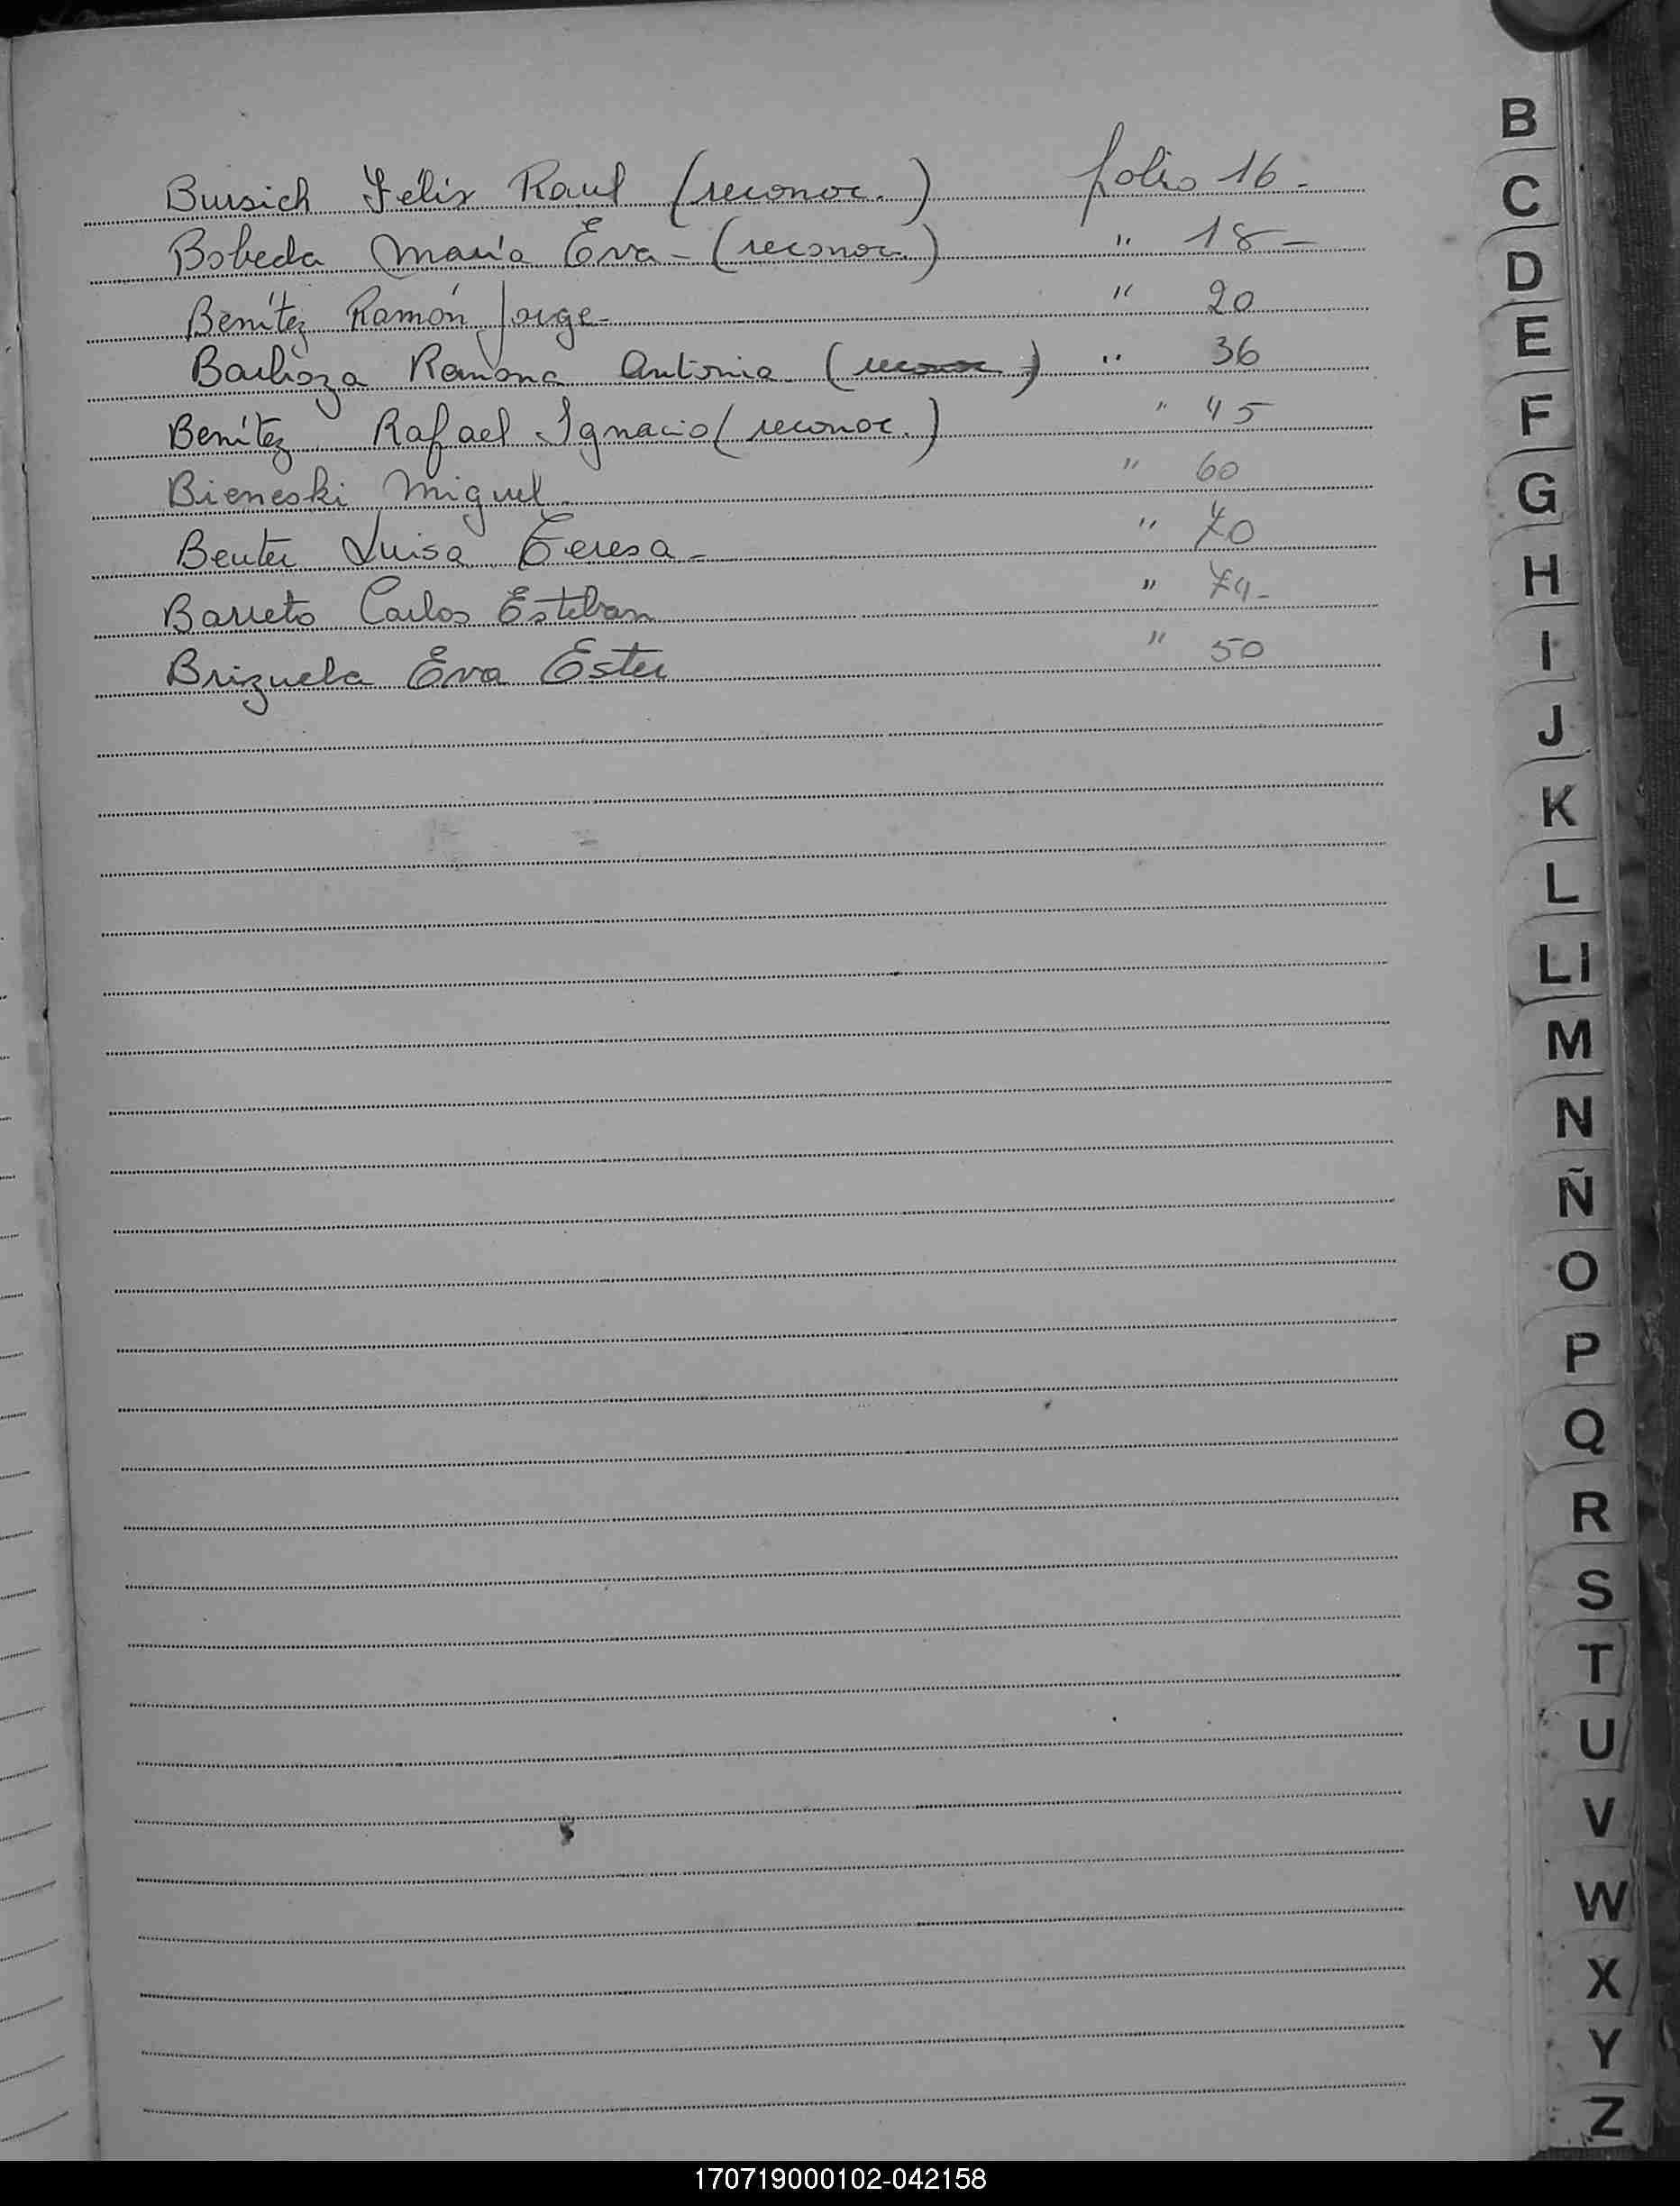 Bursich Félix Raul (reconoc.) folio 16-
Bobeda María Eva - (reconoc.) " 18-
Benítez Ramón Jorge- " 20
Barboza Ramona Antonia (reconoc) " 36
Benítez Rafael Ignacio (reconoc.) " 45
Bieneski Miguel " 60
Beuter Luisa Teresa - " 70
Barreto Carlos Esteban " 74-
Brizuela Eva Ester " 50
B
C
D
E
F
G
H
I
J
K
L
Ll
M
N
Ñ
O
P
Q
R
S
T
U
V
W
X
Y
Z
170719000102-042158